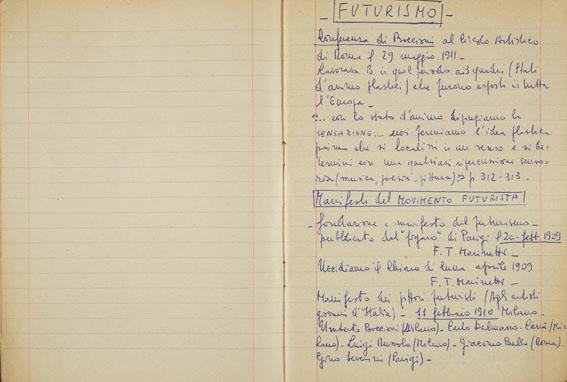 - FUTURISMO -
Conferenza di Boccioni al Circolo Artistico
di Roma il 29 maggio 1911 -
Lavorava B. in quel periodo ai 3 quadri (Stati
d'animo plastici) che furono esposti in tutta
l'Europa -
"... con lo stato d'animo dipingiamo la
SENSAZIONE... noi fermiamo l'idea plastica
prima che si localizzi in un senso e si de-
termini con una qualsiasi espressione senso-
ria (musica, poesia, pittura)" p 312-313.
Manifesti del MOVIMENTO FUTURISTA
- fondazione e manifesto del futurismo -
pubblicato dal "figaro" di Parigi il 20 febb. 1909
F. T. Marinetti -
Uccidiamo il Chiaro di luna aprile 1909
F. T. Marinetti -
Manifesto dei pittori futuristi (Agli artisti
giovani d'Italia) - 11 febbraio 1910 Milano -
Umberto Boccioni (Milano) - Carlo Dalmazzo Carrà (Mi-
lano) - Luigi Russolo (Milano) - Giacomo Balla (Roma) -
Gino Severini (Parigi) -